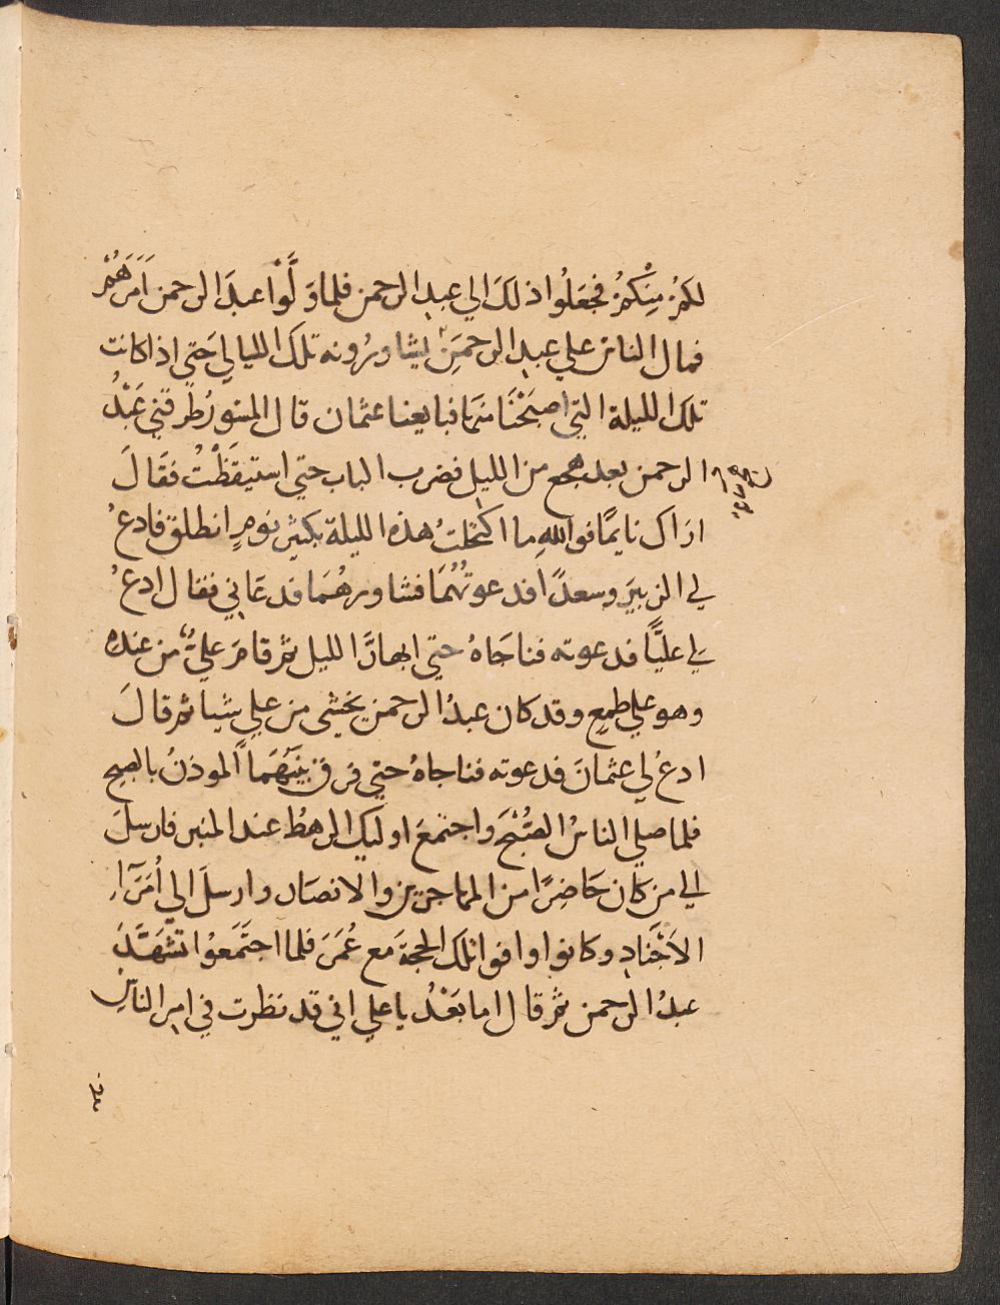 لكَمُ مِنْكمُ فجعَلُوا ذلكَ الي عبدِ الرحمن فلما وَلَّوْا عبدَ الرحمن اَمَرَهُمْ
فمال الناسُ علي عبدِ الرحمَنِ يشاورُونه تلك الليالي حَتي اذا كانت
تلك الليلة التي اصبَحْنَا منهَا فبايعنا عثمان قال المسْوَرُ طرَقَني عَبْدُ
الرحمن بعد هجع من الليل فضرب الباب حتي استيقَظْتُ فقَالَ
اراك نايمًا فوالله ما اكتحَلتُ هذه الليلة بكثيرِ نومٍ انطلق فادعُ
لي الزبيرَ وسعدًا فدعوتُهُمَا فشاورهُمَا فدعَاني فقال ادعُ
لي عليًّا فدعوته فناجَاهُ حتي ابهارَّ الليل ثم قامَ عليٌّ من عندِه
وهو علي طمعٍ وقد كان عبدُ الرحمن يخشي من علي شيا ثم قالَ
ادعُ لي عثمانَ فدعوته فناجاهُ حتي فرق بينَهُمَا الموذنُ بالصبحِ
فلما صلي الناسُ الصُّبْحَ واجتمعَ اوليك الرهطُ عند المنبر فارسلَ
الي من كان حَاضِرًا من المهاجرين والانصَار وارسلَ الي اُمَرَآءِ
الاَجْنَادِ وكانوا وافوا تلك الحجةَ مع عُمَرَ فلما اجتَمَعُوا تشَهَّدَ
عبدُ الرحمن ثم قال اما بَعْدُ يا علي اني قد نظرت في امرِ الناسِ